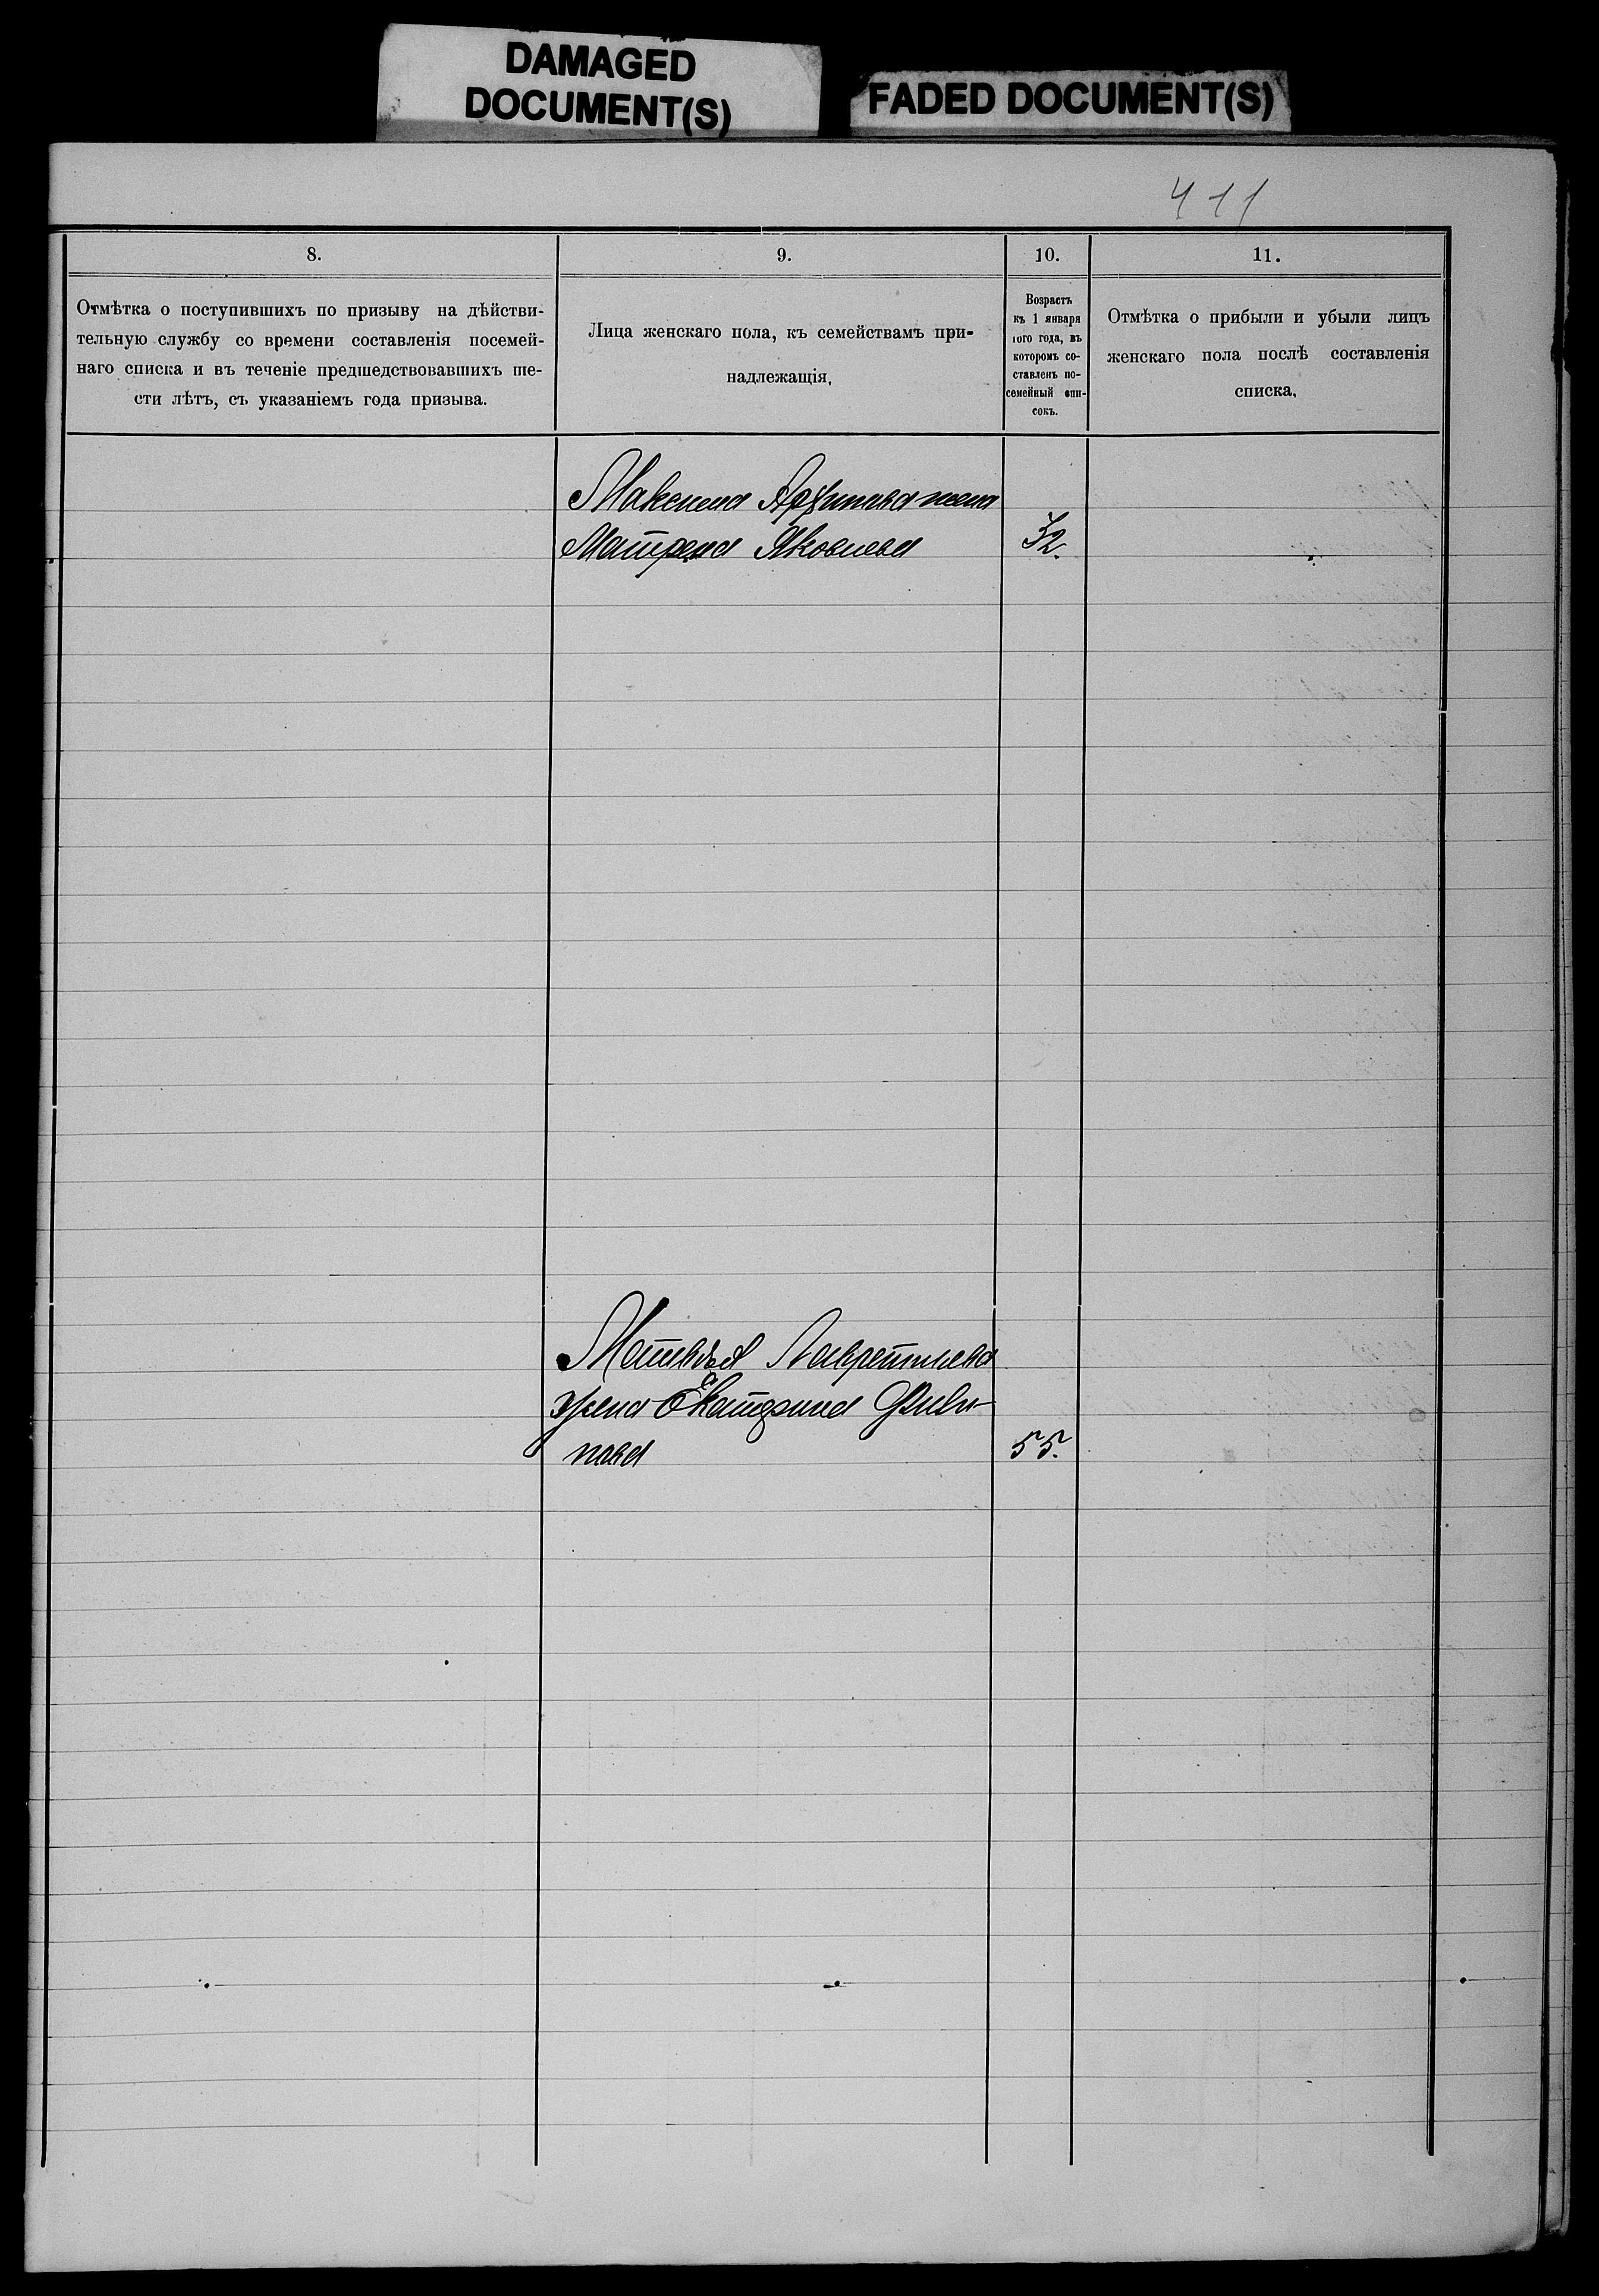 DAMAGED
DOCUMENT(S)
FADED DOCUMENT(S)
411
8.
9.
10.
11.
Отмѣтка о поступившихъ по призыву на дѣйстви-
тельную службу со времени составленія посемей-
наго списка и въ теченіе предшедствовавшихъ ше-
сти лѣтъ, съ указаніемъ года призыва.
Лица женскаго пола, къ семействамъ при-
надлежащія.
Возрастъ
къ 1 января
того года, въ
которомъ со-
ставленъ по-
семейный спи-
сокъ.
Отмѣтка о прибыли и убыли лицъ
женскаго пола послѣ составленія
списка.
Максима Архипова жена
Матрена Яковлева 32.
Матвѣя Лаврентьева
жена Екатерина Фили-
пова 55.